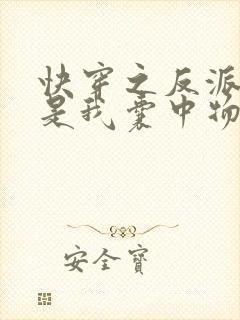 快穿之反派
是我囊中物
安全宝